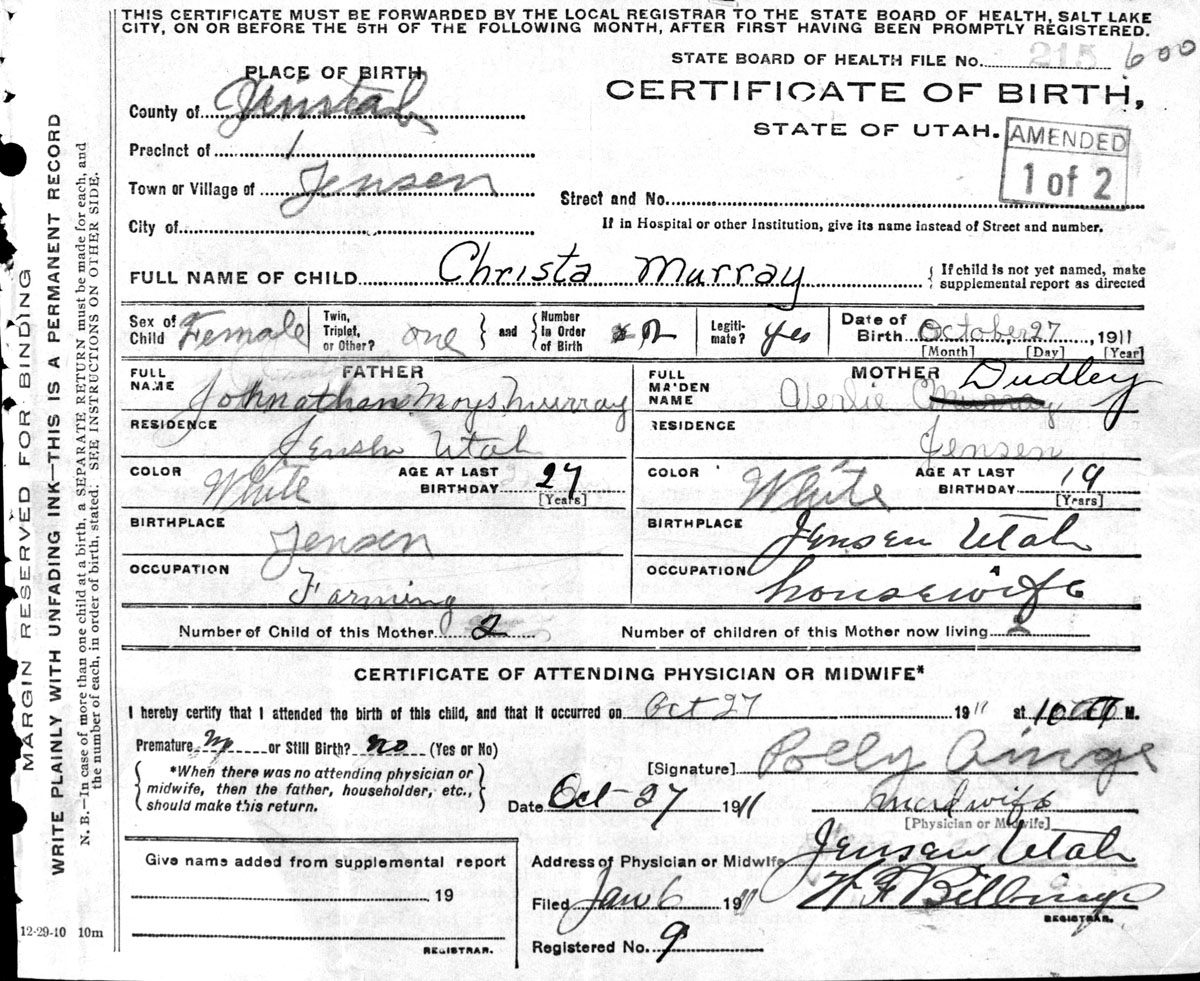 THIS CERTIFICATE MUST BE FORWARDED BY THE LOCAL REGISTRAR TO THE STATE BOARD OF HEALTH, SALT LAKE
CITY, ON OR BEFORE THE 5TH OF THE FOLLOWING MONTH, AFTER FIRST HAVING BEEN PROMPTLY REGISTERED.
STATE BOARD OF HEALTH FILE No. 215 600
PLACE OF BIRTH
CERTIFICATE OF BIRTH,
County of
STATE OF UTAH.
AMENDED
1 of 2
Precinct of 1
Town or Village of Jensen
Street and No.
City of
If in Hospital or other Institution, give its name instead of Street and number.
FULL NAME OF CHILD Christa Murray
{ If child is not yet named, make
supplemental report as directed
Sex of Child Female
Twin, Triplet, or Other? one } and { Number in Order of Birth 2
Legitimate? yes
Date of Birth October 27, 1911
[Month] [Day] [Year]
FATHER
FULL NAME Johnathan Moys Murray
RESIDENCE Jensen Utah
COLOR White
AGE AT LAST BIRTHDAY 27
[Years]
BIRTHPLACE Jensen
OCCUPATION Farming
MOTHER
FULL MAIDEN NAME Verlie Murray Dudley
RESIDENCE Jensen
COLOR White
AGE AT LAST BIRTHDAY 19
[Years]
BIRTHPLACE Jensen Utah
OCCUPATION housewife
Number of Child of this Mother 2
Number of children of this Mother now living 2
CERTIFICATE OF ATTENDING PHYSICIAN OR MIDWIFE*
I hereby certify that I attended the birth of this child, and that it occurred on Oct 27 1911 at 10 M.
Premature No or Still Birth? no (Yes or No)
{ *When there was no attending physician or
midwife, then the father, householder, etc.,
should make this return. }
[Signature] Polly
Date Oct-27 1911
[Physician or Midwife]
Give name added from supplemental report
19
REGISTRAR.
Address of Physician or Midwife Jensen Utah
Filed Jan 6 191
W F Billings
REGISTRAR.
Registered No. 9
MARGIN RESERVED FOR BINDING
WRITE PLAINLY WITH UNFADING INK—THIS IS A PERMANENT RECORD
N. B.—In case of more than one child at a birth, a SEPARATE RETURN must be made for each, and
the number of each, in order of birth, stated. SEE INSTRUCTIONS ON OTHER SIDE.
12-29-10 10m